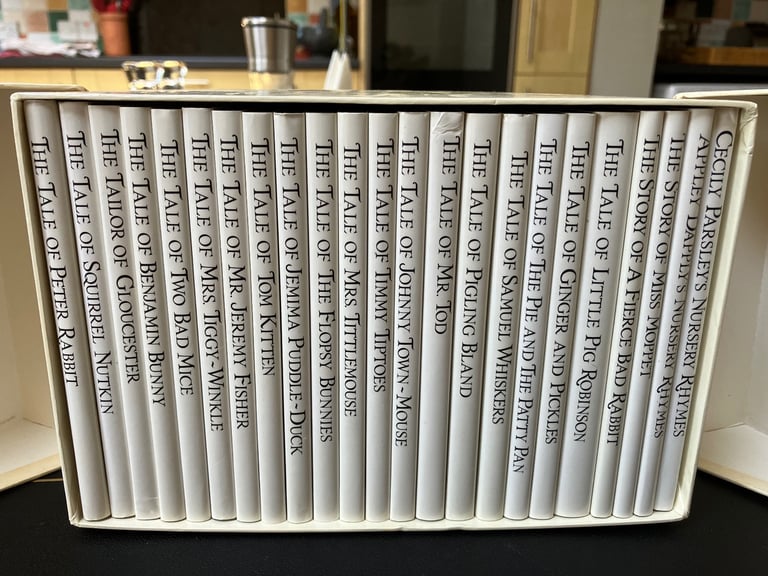 THE TALE OF PETER RABBIT
THE TALE OF SQUIRREL NUTKIN
THE TAILOR OF GLOUCESTER
THE TALE OF BENJAMIN BUNNY
THE TALE OF TWO BAD MICE
THE TALE OF MRS. TIGGY-WINKLE
THE TALE OF MR. JEREMY FISHER
THE TALE OF TOM KITTEN
THE TALE OF JEMIMA PUDDLE-DUCK
THE TALE OF THE FLOPSY BUNNIES
THE TALE OF MRS. TITTLEMOUSE
THE TALE OF TIMMY TIPTOES
THE TALE OF JOHNNY TOWN-MOUSE
THE TALE OF MR. TOD
THE TALE OF PIGLING BLAND
THE TALE OF SAMUEL WHISKERS
THE TALE OF THE PIE AND THE PATTY PAN
THE TALE OF GINGER AND PICKLES
THE TALE OF LITTLE PIG ROBINSON
THE STORY OF A FIERCE BAD RABBIT
THE STORY OF MISS MOPPET
APPLEY DAPPLY'S NURSERY RHYMES
CECILY PARSLEY'S NURSERY RHYMES